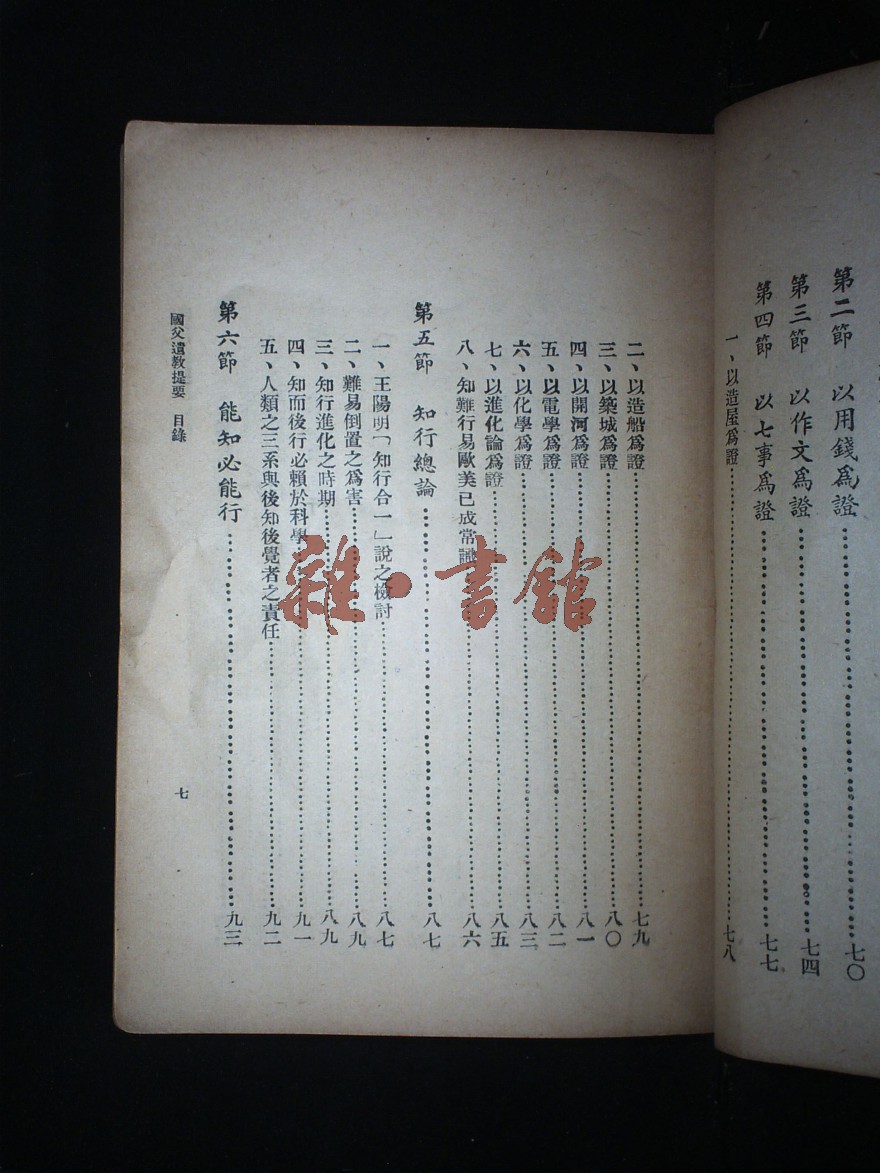 第二節　以用錢爲證……七〇
第三節　以作文爲證……七四
第四節　以七事爲證……七七
一、以造屋爲證……七八
二、以造船爲證……七九
三、以築城爲證……八〇
四、以開河爲證……八一
五、以電學爲證……八二
六、以化學爲證……八三
七、以進化論爲證……八五
八、知難行易歐美已成常識……八六
第五節　知行總論……八七
一、王陽明「知行合一」說之檢討……八七
二、難易倒置之爲害……八九
三、知行進化之時期……八九
四、知而後行必賴於科學……九一
五、人類之三系與後知後覺者之責任……九二
第六節　能知必能行……九三
國父遺教提要　目錄
七
雜·書館